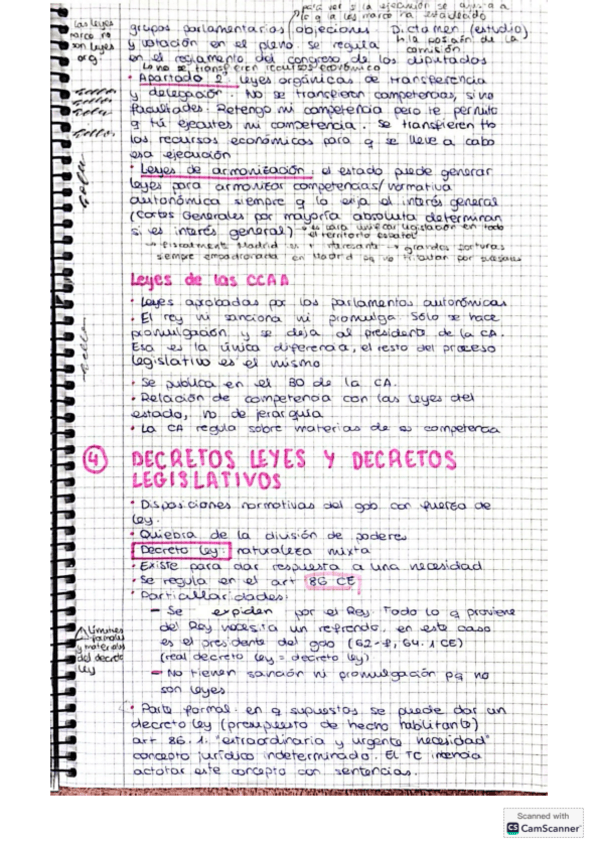 para ver si la ejecución se ajusta a
lo q a les marco ha establecido
las leyes
marco no
son leyes
org.
grupos parlamentarios / objeciones. Dictamen (estudio)
y votación en el pleno. Se regula
comisión
en el reglamento del congreso de los diputados
no se transfieren recursos económico
• Apartado 2: leyes orgánicas de transferencia
y delegación. No se transfieren competencias, sino
facultades. Retengo mi competencia pero te permito
q tú ejecutes mi competencia. Se transfieren tb
los recursos económicos para q se lleve a cabo
esa ejecución
• Leyes de armonización: el estado puede generar
leyes para armonizar competencias/normativa
autonómica siempre q lo exija el interés general
(Cortes Generales por mayoría absoluta determinan
si es interés general) → es para unificar legislación en todo
el territorio español
→ fiscalmente Madrid es + interesante → grandes fortunas
siempre empadronada en Madrid pq no tributan por
Leyes de las CCAA
• Leyes aprobadas por los parlamentos autonómicos
• El rey ni sanciona ni promulga. Sólo se hace
promulgación y se deja al presidente de la CA.
Esa es la única diferencia, el resto del proceso
legislativo es el mismo
• Se publica en el BO de la CA.
• Relación de competencia con las leyes del
estado, no de jerarquía
• La CA regula sobre materias de su competencia
④ DECRETOS LEYES Y DECRETOS
LEGISLATIVOS
• Disposiciones normativas del gob con fuerza de
ley.
• Quiebra de la división de poderes
Decreto ley: naturaleza mixta
• Existe para dar respuesta a una necesidad
• Se regula en el art 86 CE
• Particularidades:
– Se expiden por el Rey. Todo lo q proviene
del Rey necesita un refrendo, en este caso
es el presidente del gob (62-f, 64.1 CE)
(real decreto ley = decreto ley)
– No tienen sanción ni promulgación pq no
son leyes
Límites
formales
y materiales
del decreto
ley
• Parte formal: en q supuestos se puede dar un
decreto ley (presupuesto de hecho habilitante)
art 86.1. "extraordinaria y urgente necesidad"
concepto jurídico indeterminado. El TC intencia
acotar este concepto con sentencias.
Scanned with
CS CamScanner